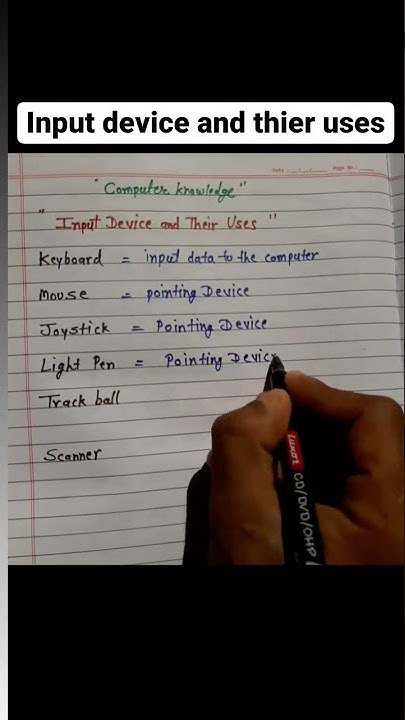 Input device and thier uses
Date : __/__/____ Page No.: ____
"Computer knowledge"
"Input Device and Their Uses"
Keyboard = input data to the computer
Mouse = pointing Device
Joystick = Pointing Device
Light Pen = Pointing Devic
Track ball
Scanner
Luxor CD/DVD/OHP